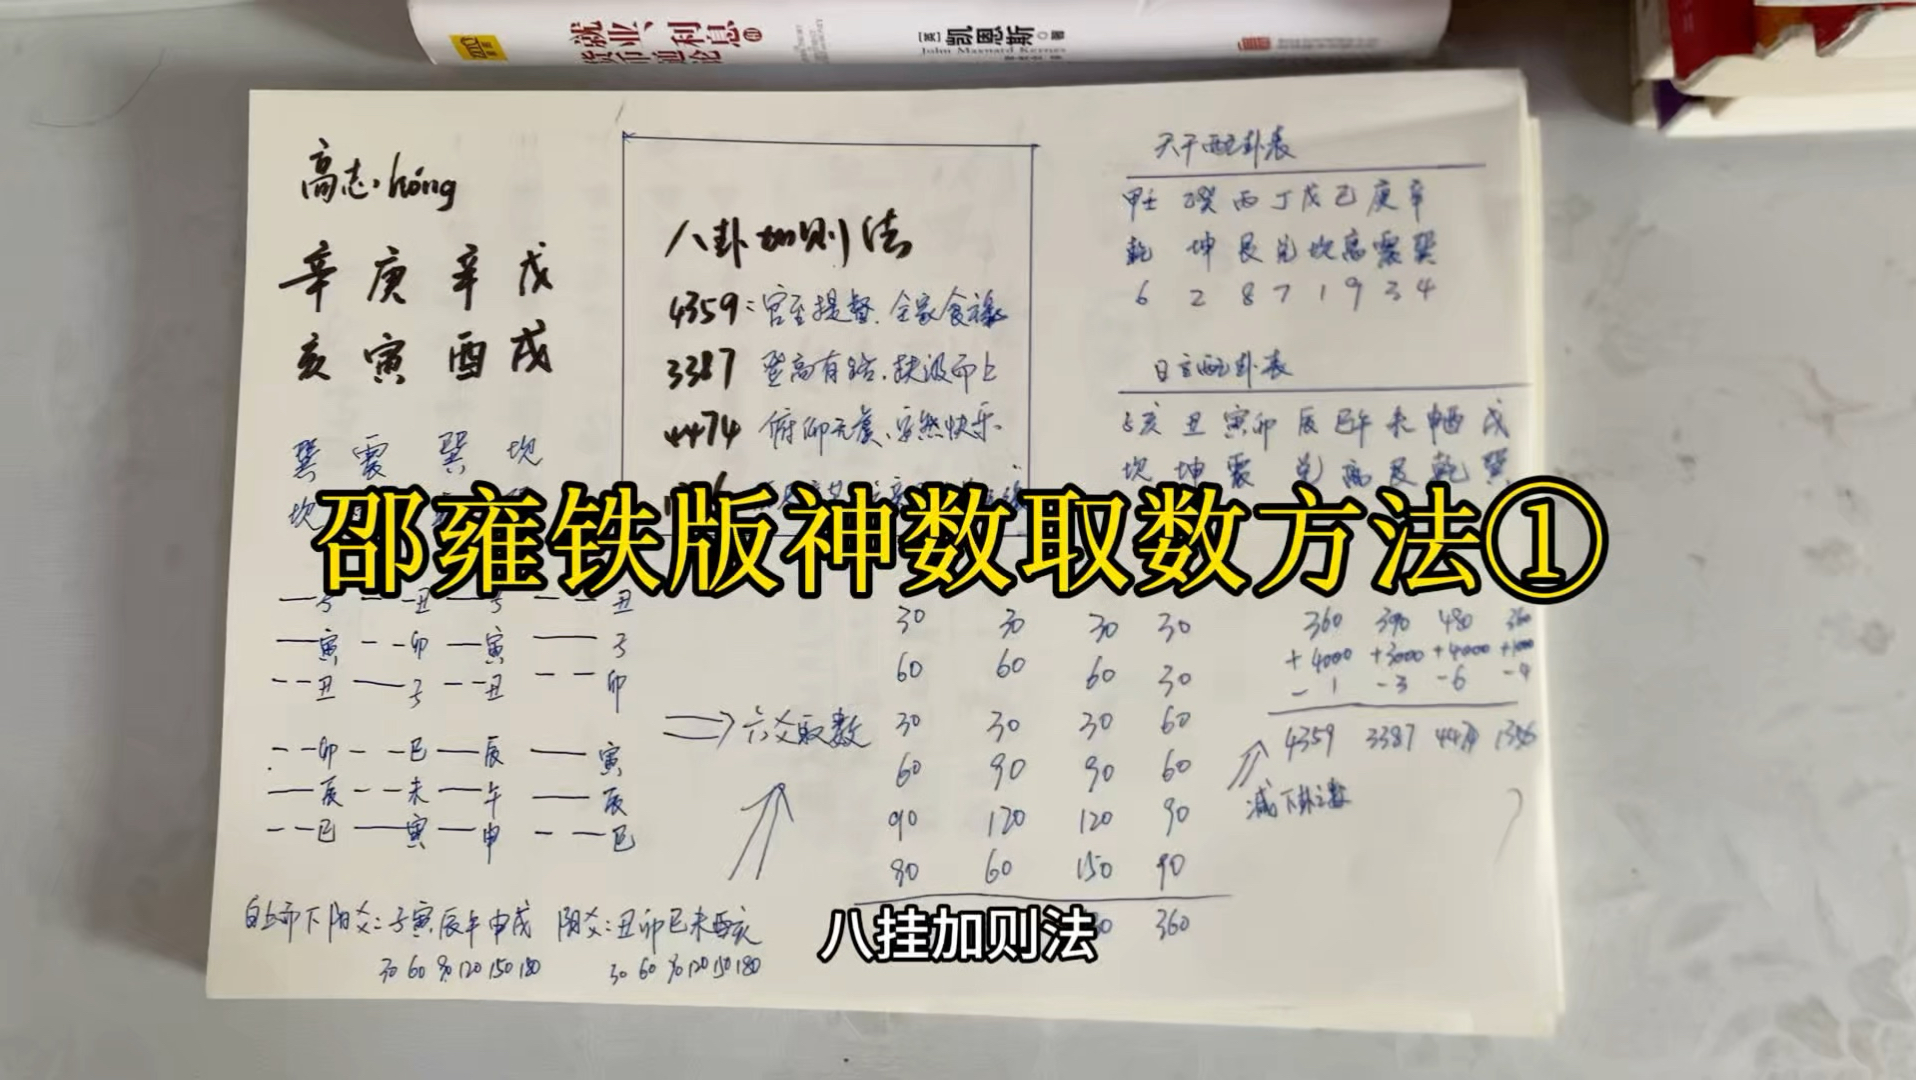 就业、利息和
货币通论
[英] 凯恩斯 ◎著
John Maynard Keynes
高志·hóng
辛 庚 辛 戊
亥 寅 酉 戌
巽 震 巽 坎
坎
八卦加则法
4359：官至提督、全家食禄
3387 登高有路、扶汲而上
4474 俯仰无虞、安然快乐
天干配卦表
甲壬 乙癸 丙 丁 戊 己 庚 辛
乾 坤 艮 兑 坎 离 震 巽
6 2 8 7 1 9 3 4
配卦表
子亥 丑 寅卯 辰 巳午 未 申酉 戌
坎 坤 震 兑 离 艮 乾 巽
邵雍铁版神数取数方法①
子 丑 子 丑
寅 卯 寅 子
丑 子 丑 卯
卯 巳 辰 寅
辰 未 午 辰
巳 寅 申 巳
=> 六爻取数
30 30 30 30
60 60 60 30
30 30 30 60
60 90 90 60
90 120 120 90
90 60 150 90
360
360 390 480 360
+4000 +3000 +4000 +1000
-1 -3 -6 -4
4359 3387 4474 1356
减下卦之数
自上而下阳爻：子寅辰午申戌 阴爻：丑卯巳未酉亥
30 60 90 120 150 180 30 60 90 120 150 180
八挂加则法